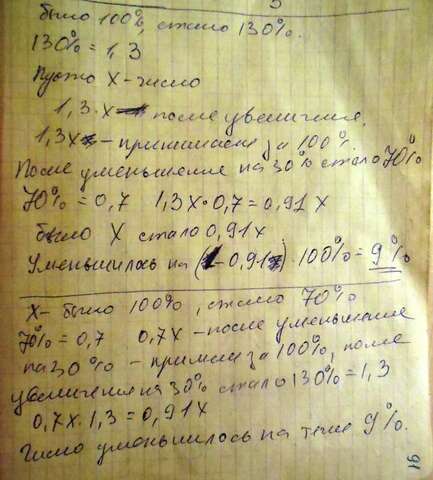 было 100%, стало 130%.
130% = 1,3
Пусть X - число
1,3·x - после увеличения.
1,3x - принимаем за 100%.
После уменьшение на 30% стало 70%
70% = 0,7 1,3x·0,7 = 0,91x
было X стало 0,91x
Уменьшилось на (1-0,91)·100% = 9%
X - было 100%, стало 70%
70% = 0,7 0,7x - после уменьшение
на 30% - примем за 100%, после
увеличения на 30% стало 130% = 1,3
0,7x·1,3 = 0,91x
Число уменьшилось на теже 9%.
91